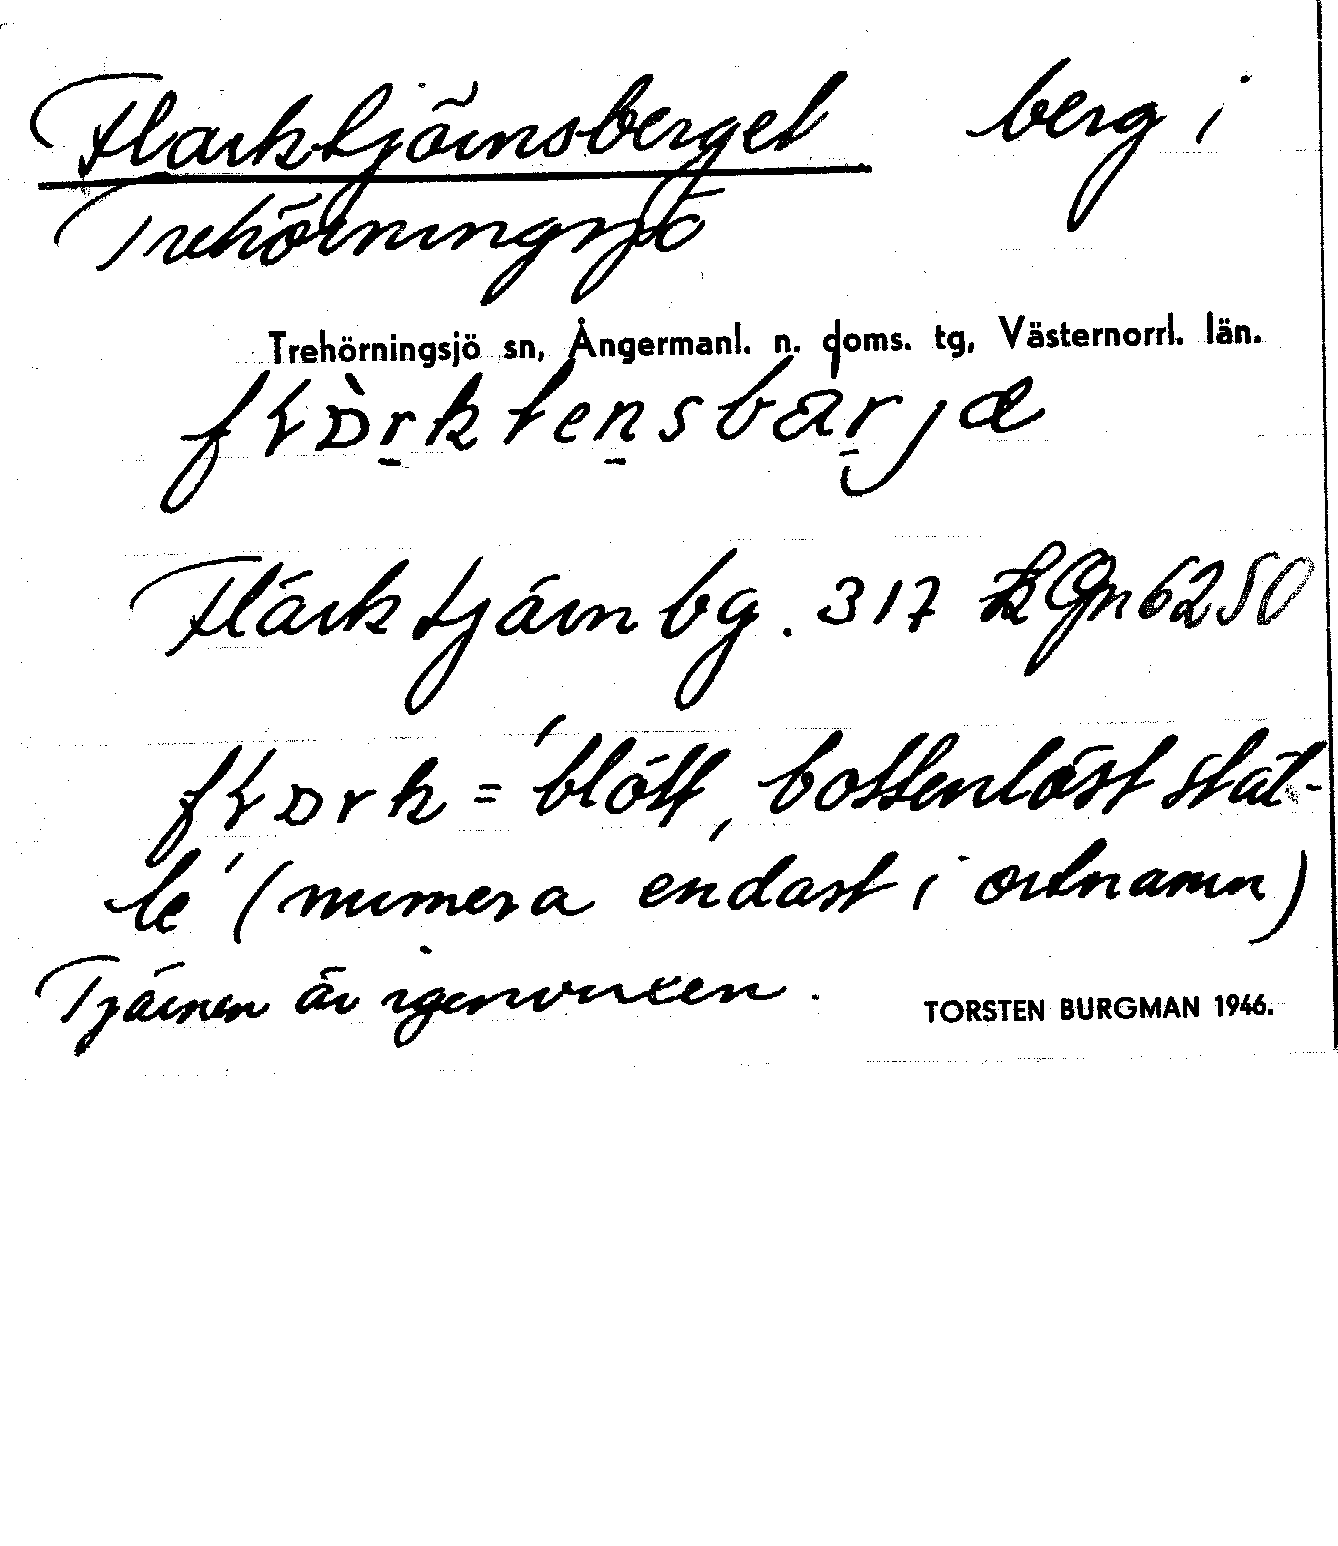 Flarktjärnsberget berg i
Trehörningsjö
Trehörningsjö sn, Ångermanl. n. doms. tg, Västernorrl. län.
Flärktjärnbg. 317 6250
= ʹblött, bottenlöst stäl-
leʹ (numera endast i ortnamn)
Tjärnen är igenvuxen.
TORSTEN BURGMAN 1946.